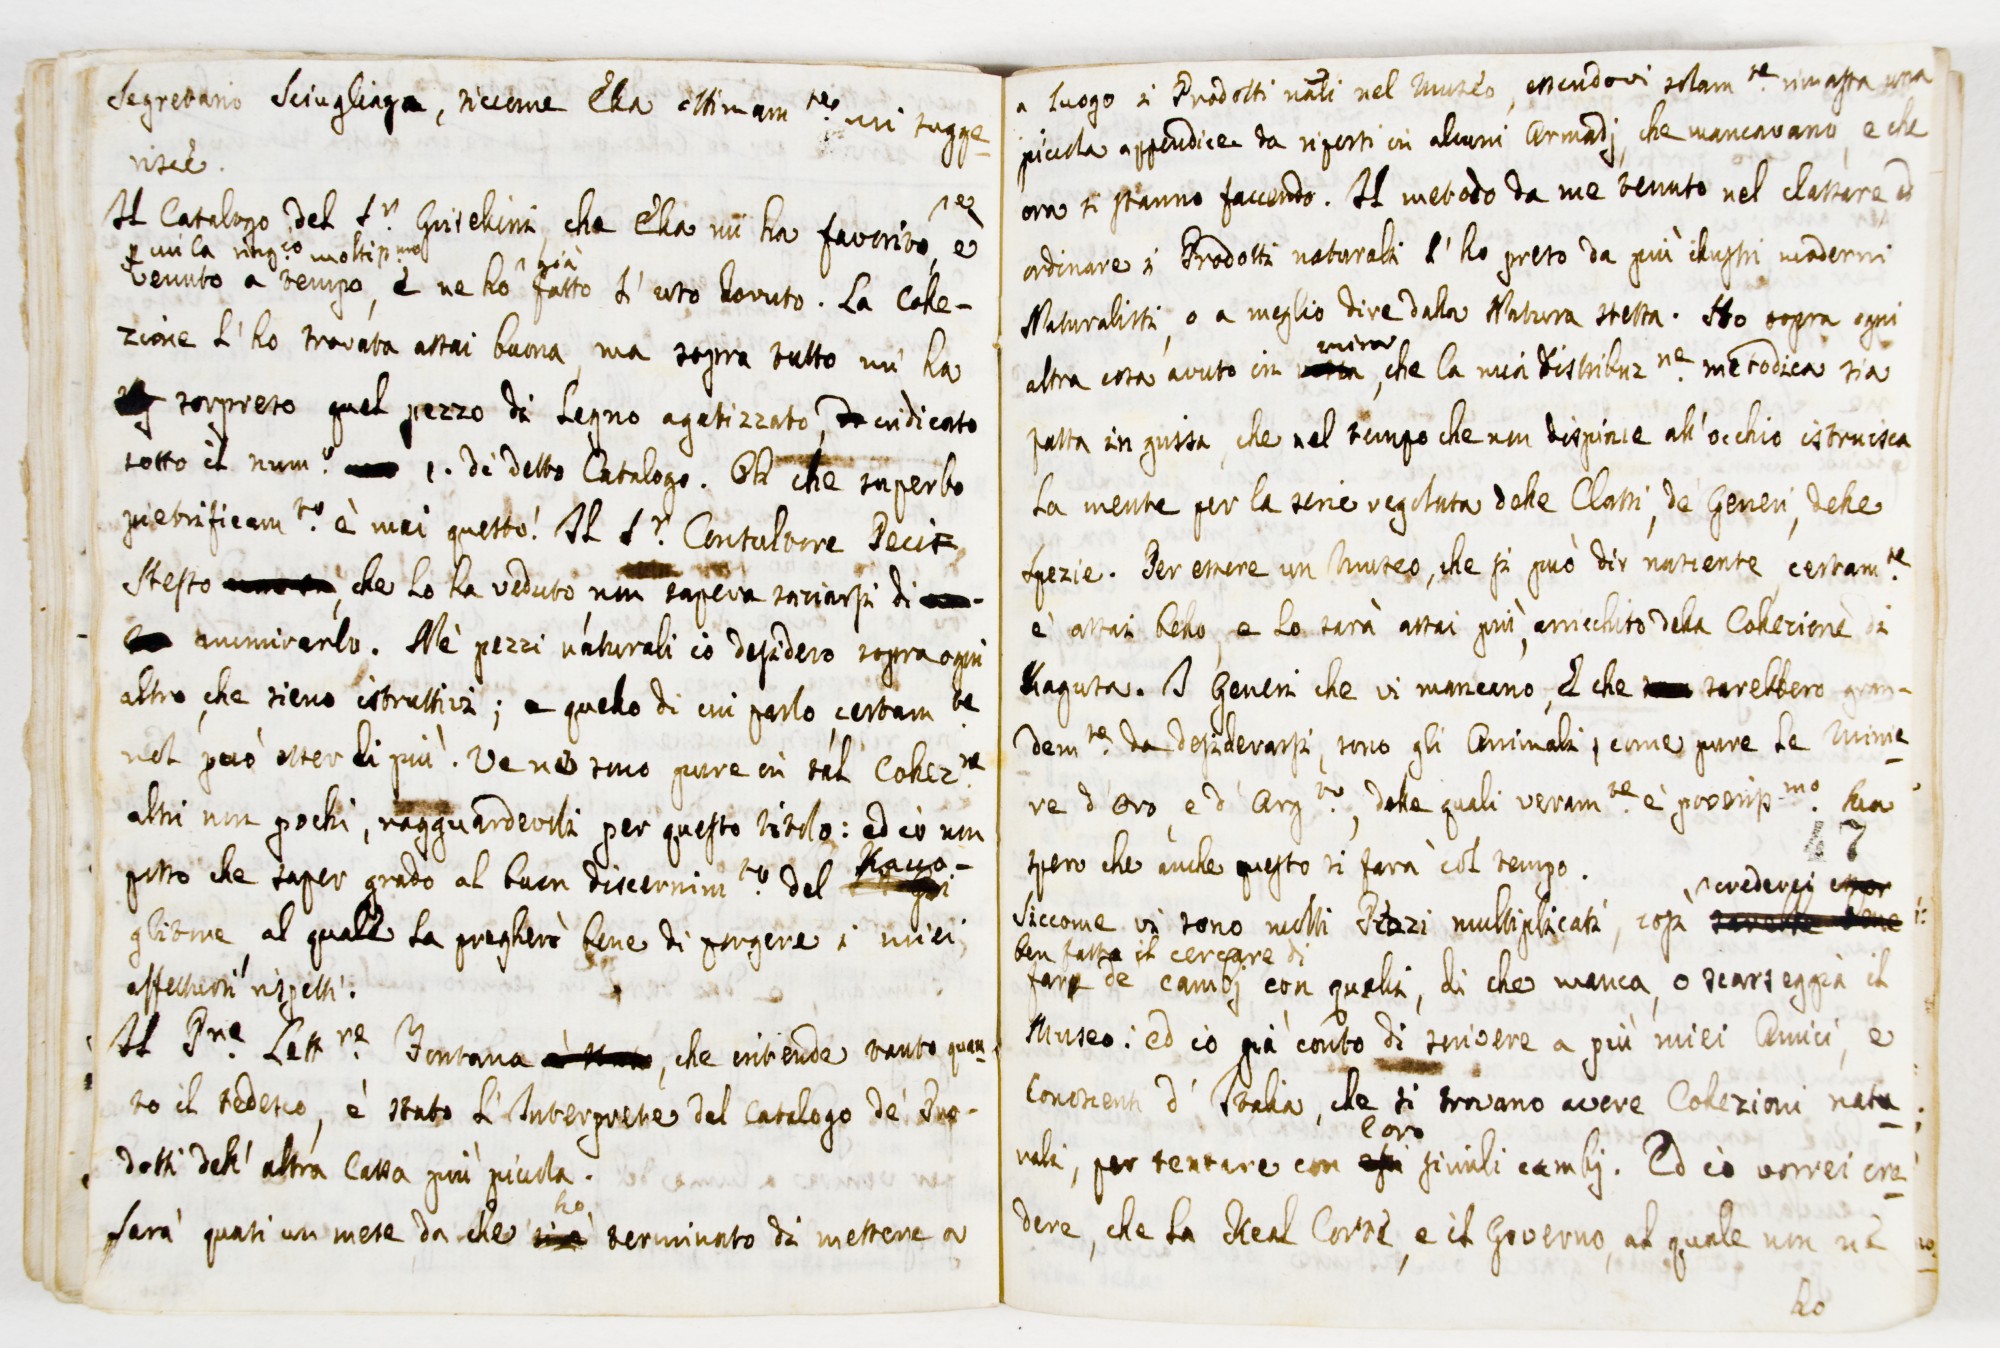 Segretario Sciugliaga, siccome Ella ottimam.te mi sugge-
risce.
Il Catalogo del S.r Gütchini, che Ella mi ha favorito, e
p cui la ring.io moltiss.mo
venuto a tempo, e ne ho già fatto l'uso dovuto. La Colle-
zione l'ho trovata assai buona, ma sopra tutto mi ha
sorpreso quel pezzo di Legno agatizzato, indicato
sotto il num.o 1. di detto Catalogo. Oh che superbo
pietrificam.to è mai questo! Il S.r Consultore Pecis
stesso, che lo ha veduto non sapeva saziarsi di
ammirarlo. Ne' pezzi naturali io desidero sopra ogni
altro, che sieno istruttivi; e quello di cui parlo certam.te
nol può esser di più. Ve ne sono pure in tal Collez.ne
altri non pochi, ragguardevoli per questo titolo: ed io non
posso che saper grado al buon discernim.to del Racco-
glitore, al quale La pregherò bene di porgere i miei
affettuosi rispetti.
Il P.re Lett.re Fontana, che intende tanto quan-
to il tedesco, è stato l'Interprete del Catalogo de' Pro-
dotti dell'altra Cassa più piccola.
Sarà quasi un mese da che ho terminato di mettere a
a luogo i Prodotti nāli nel Museo, essendovi solam.te rimasta una
piccola appendice da riporsi in alcuni Armadj, che mancavano, e che
ora si stanno facendo. Il metodo da me tenuto nel classare ed
ordinare i Prodotti naturali l'ho preso da più illustri moderni
Naturalisti, o a meglio dire dalla Natura stessa. Ho sopra ogni
altra cosa avuto in mira, che la mia distribuz.ne metodica sia
fatta in guisa, che nel tempo che non dispiace all'occhio istruisca
la mente per la serie regolata delle Classi, de' Generi, delle
Spezie. Per essere un Museo, che si può dir nasciente, certam.te
è assai bello, e lo sarà assai più, arricchito della Collezione di
Ragusa. I Generi che vi mancano, e che sarebbero gran-
dem.te da desiderarsi, sono gli Animali, come pure le Minie-
re d'Oro, e d'Arg.to, delle quali veram.te è poveriss.mo. Ma
47
spero che anche questo si farà col tempo.
Siccome vi sono molti Pezzi multiplicati, così crederei
ben fatto il cercare di
fare de' cambj con quelli, di che manca, o scarseggia il
Museo: ed io già conto di scrivere a più miei Amici, e
Conoscenti d'Italia, che si trovano avere Collezioni natu-
rali, per tentare con loro simili cambj. Ed io vorrei cre-
dere, che la Real Corte, e il Governo, al quale non ne
ho